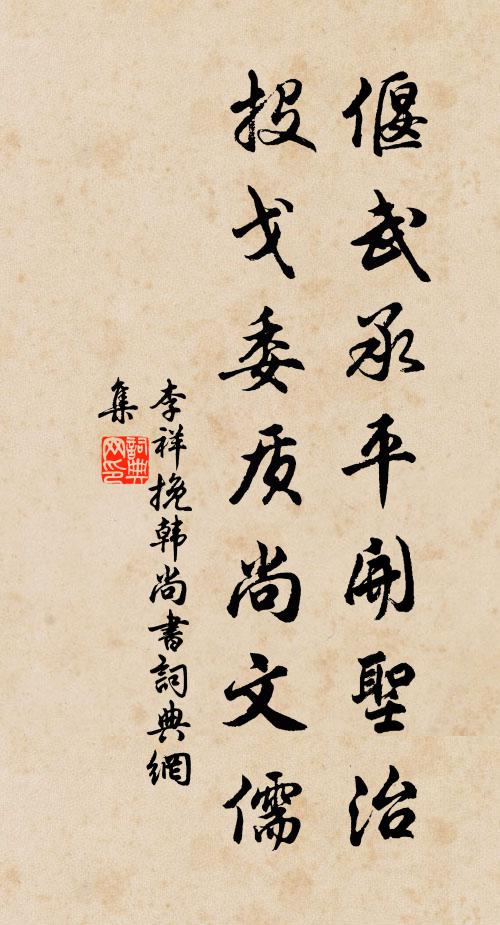 偃武承平開聖治
投戈委质尚文儒
李祥挽韩尚書詞典網
集
詞典
网印